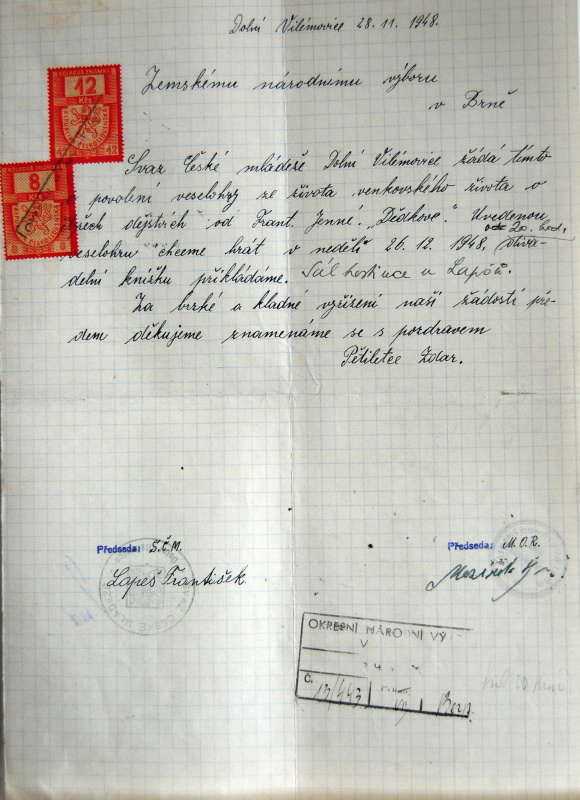 Dolní Vilémovice 28.11.1948.
Zemskému národnímu výboru
v Brně
KOLKOVÁ ZNÁMKA
12
Kčs
12
KOLKOVÁ ZNÁMKA
8
Svaz České mládeže Dolní Vilémovice žádá tímto
o povolení veselohry ze života venkovského života o
třech dějstvích od Frant. Jenné. „Dědkové." Uvedenou
od 20. hod.
veselohru chceme hrát v neděli 26.12.1948, diva-
delní knížku přikládáme. Sál hostince u Lapšů.
Za brzké a kladné vyřízení naší žádosti pře-
dem děkujeme znamenáme se s pozdravem
Pětiletce Zdar.
Předseda: S.Č.M.
Lapeš František
Předseda: M.O.R.
OKRESNÍ NÁRODNÍ VÝ
V
Č. 13/443